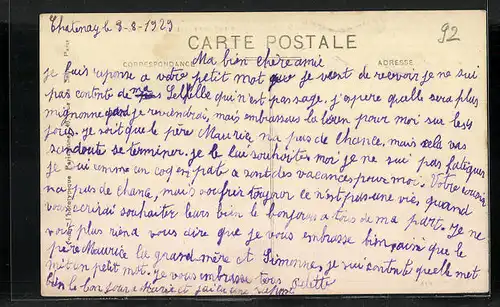 Chatenay le 9-8-1929
92
CARTE POSTALE
CORRESPONDANCE
ADRESSE
Ma bien chère amie
je fais reponse a votre petit mot que je vient de recevoir je ne sui
pas contente de pas sage, j'espere qualle sera plus
mignonne quand je reviendrai, mais embrassus la bien pour moi sur les
joues. je sait que le père Maurice, na pas de chance, mais sela vas
sandoute se terminer. je le lui souhaites moi je ne sui pas fatiguer
je sui comme un coq en pate a sont des vacances pour moi. Votre
na pas de chance, mais soufrir toujour ce n'est pas une vie, quand
vous souhaiter leurs bien le bonjour a tous de ma part. Je ne
vois plus rien a vous dire que je vous embrasse bien, ainsi que le
père Maurice la grand mère et Simonne, je sui contente quelle met
mit un petit mot. Je vous embrasse tous
bien le bonjour a Marie et